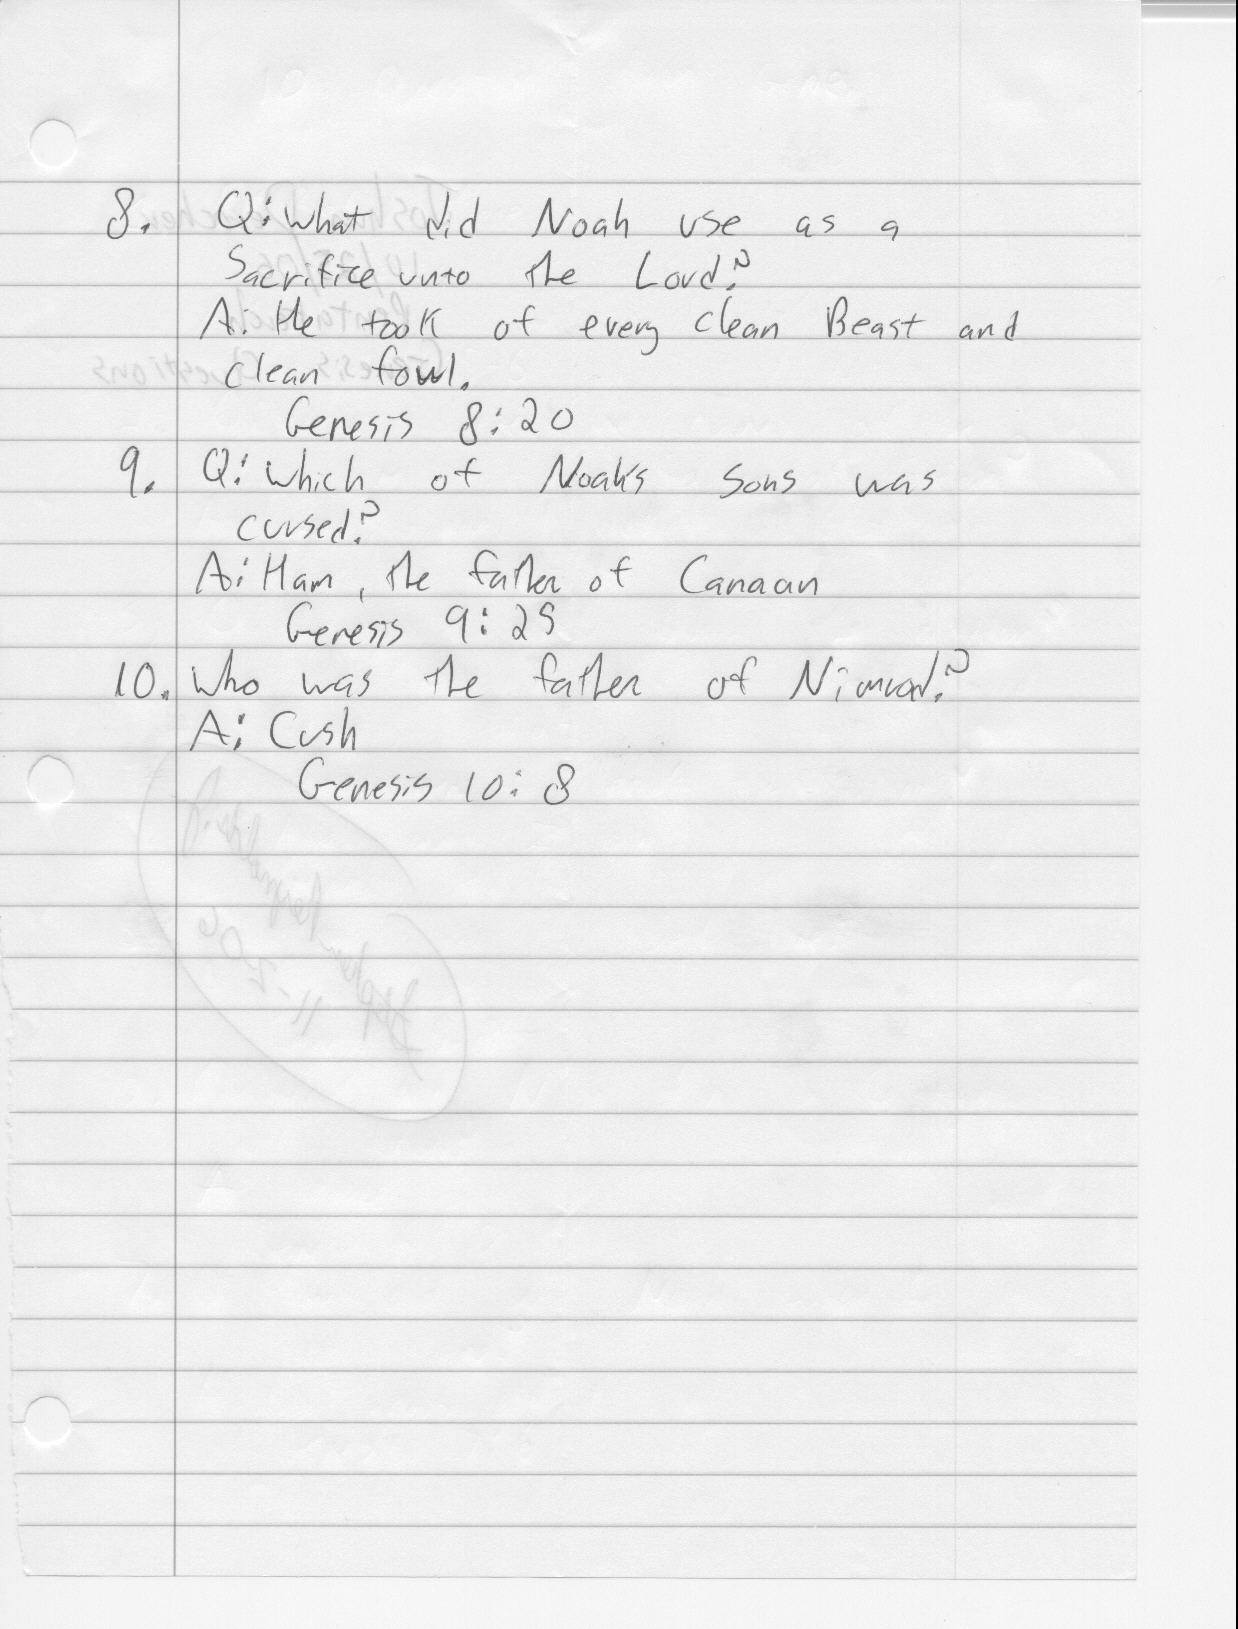 8. Q: What did Noah use as a
Sacrifice unto the Lord?
A: He took of every clean Beast and
clean fowl.
Genesis 8:20
9. Q: Which of Noah's Sons was
cursed?
A: Ham, the father of Canaan
Genesis 9:25
10. Who was the father of Nimrod?
A: Cush
Genesis 10:8